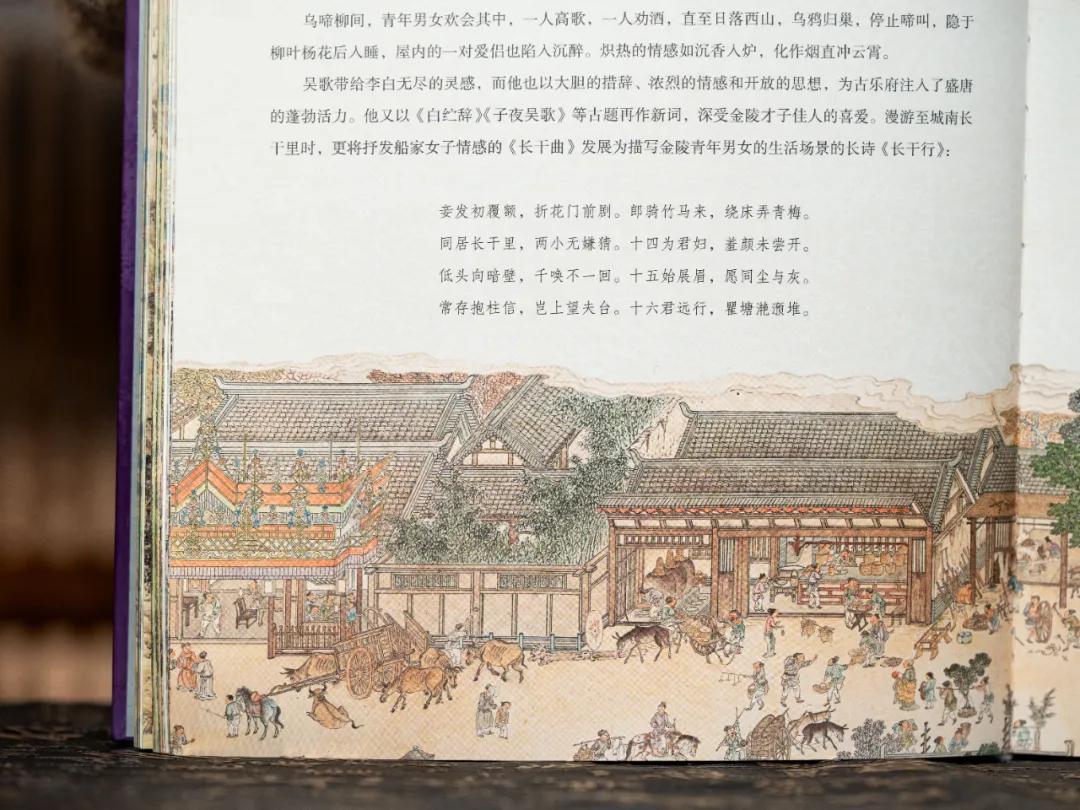 乌啼柳间，青年男女欢会其中，一人高歌，一人劝酒，直至日落西山，乌鸦归巢，停止啼叫，隐于
柳叶杨花后入睡，屋内的一对爱侣也陷入沉醉。炽热的情感如沉香入炉，化作烟直冲云霄。
吴歌带给李白无尽的灵感，而他也以大胆的措辞、浓烈的情感和开放的思想，为古乐府注入了盛唐
的蓬勃活力。他又以《白纻辞》《子夜吴歌》等古题再作新词，深受金陵才子佳人的喜爱。漫游至城南长
干里时，更将抒发船家女子情感的《长干曲》发展为描写金陵青年男女的生活场景的长诗《长干行》：
妾发初覆额，折花门前剧。郎骑竹马来，绕床弄青梅。
同居长干里，两小无嫌猜。十四为君妇，羞颜未尝开。
低头向暗壁，千唤不一回。十五始展眉，愿同尘与灰。
常存抱柱信，岂上望夫台。十六君远行，瞿塘滟滪堆。